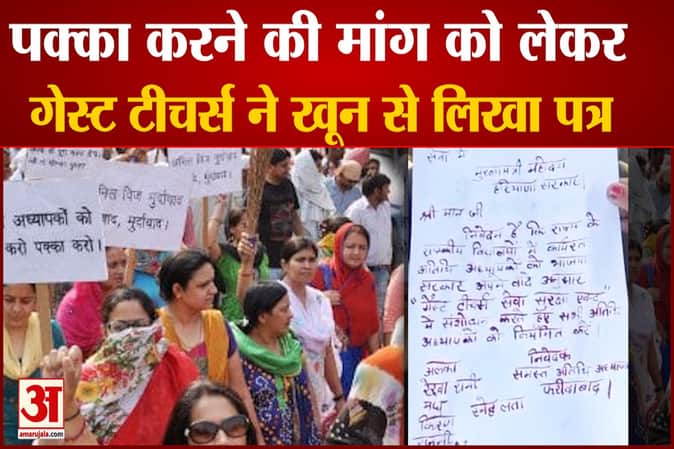 पक्का करने की मांग को लेकर
गेस्ट टीचर्स ने खून से लिखा पत्र
अध्यापकों को
करो पक्का करो।
विज मुर्दाबाद
बाद, मुर्दाबाद।
मुर्दाबाद.
सेवा में
मुख्यमंत्री महोदय
हरियाणा सरकार।
श्री मान जी
निवेदन है कि राज्य के
राजकीय विद्यालयों में कार्यरत
अतिथि अध्यापकों को भाजपा
सरकार अपने वादे अनुसार
"गेस्ट टीचर्स सेवा सुरक्षा एक्ट"
में संशोधन करते हुए सभी अतिथि
अध्यापकों को नियमित करें।
निवेदक
अलका
समस्त अतिथि अध्यापक
रेखा रानी
फरीदाबाद।
स्नेह लता
किरण
अ
amarujala.com